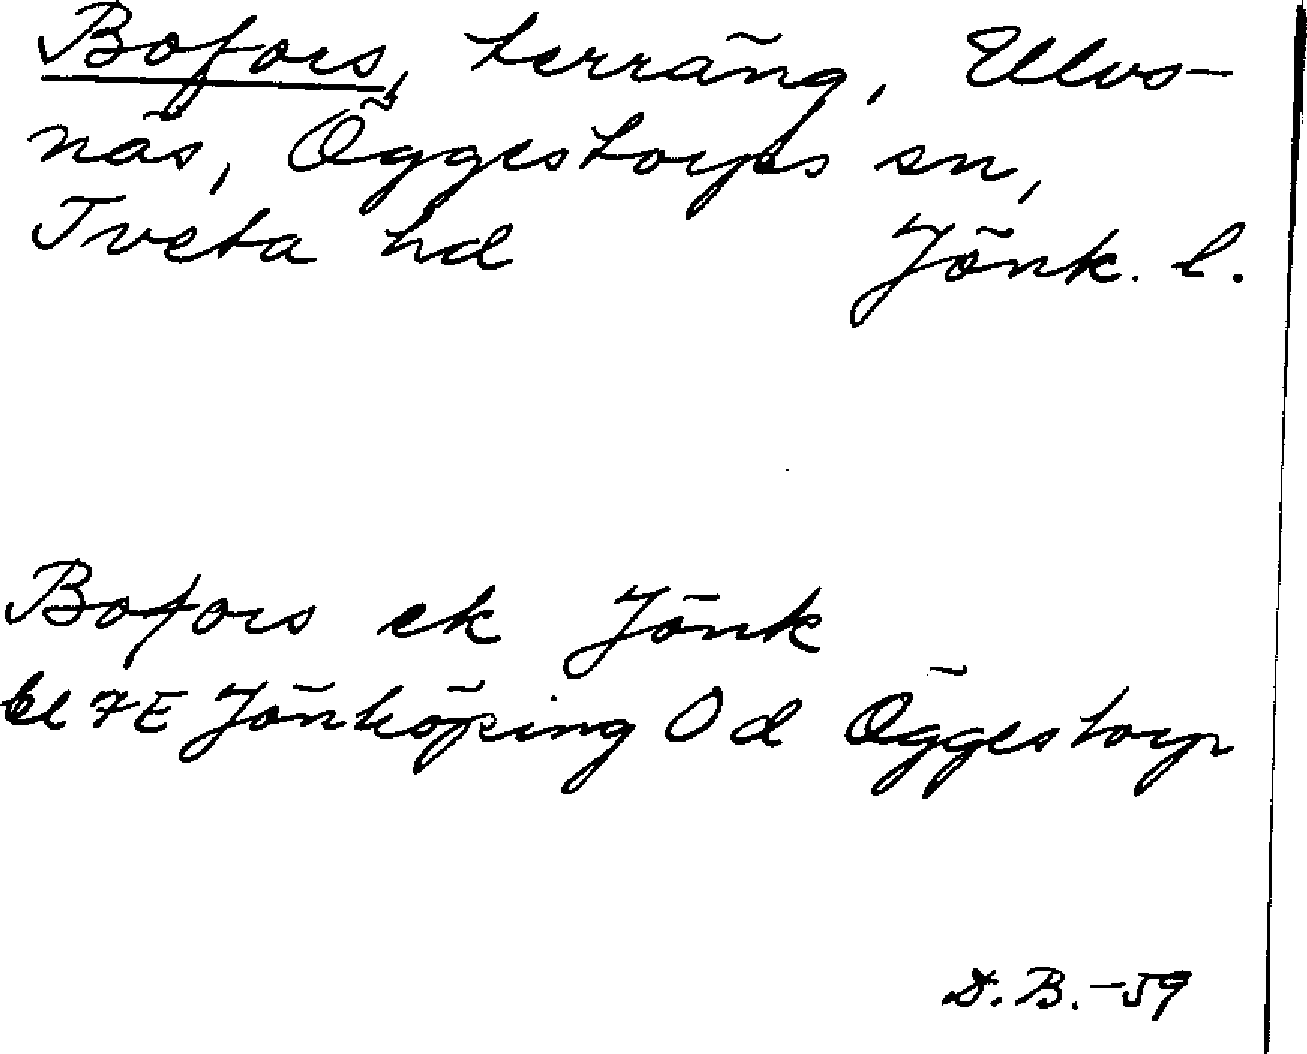 Bofors, terräng, Ulvs-
näs, Öggestorps sn,
Tveta hd Jönk. l.
Bofors ek Jönk
bl 7E Jönköping Od Öggestorp
D. B. -59